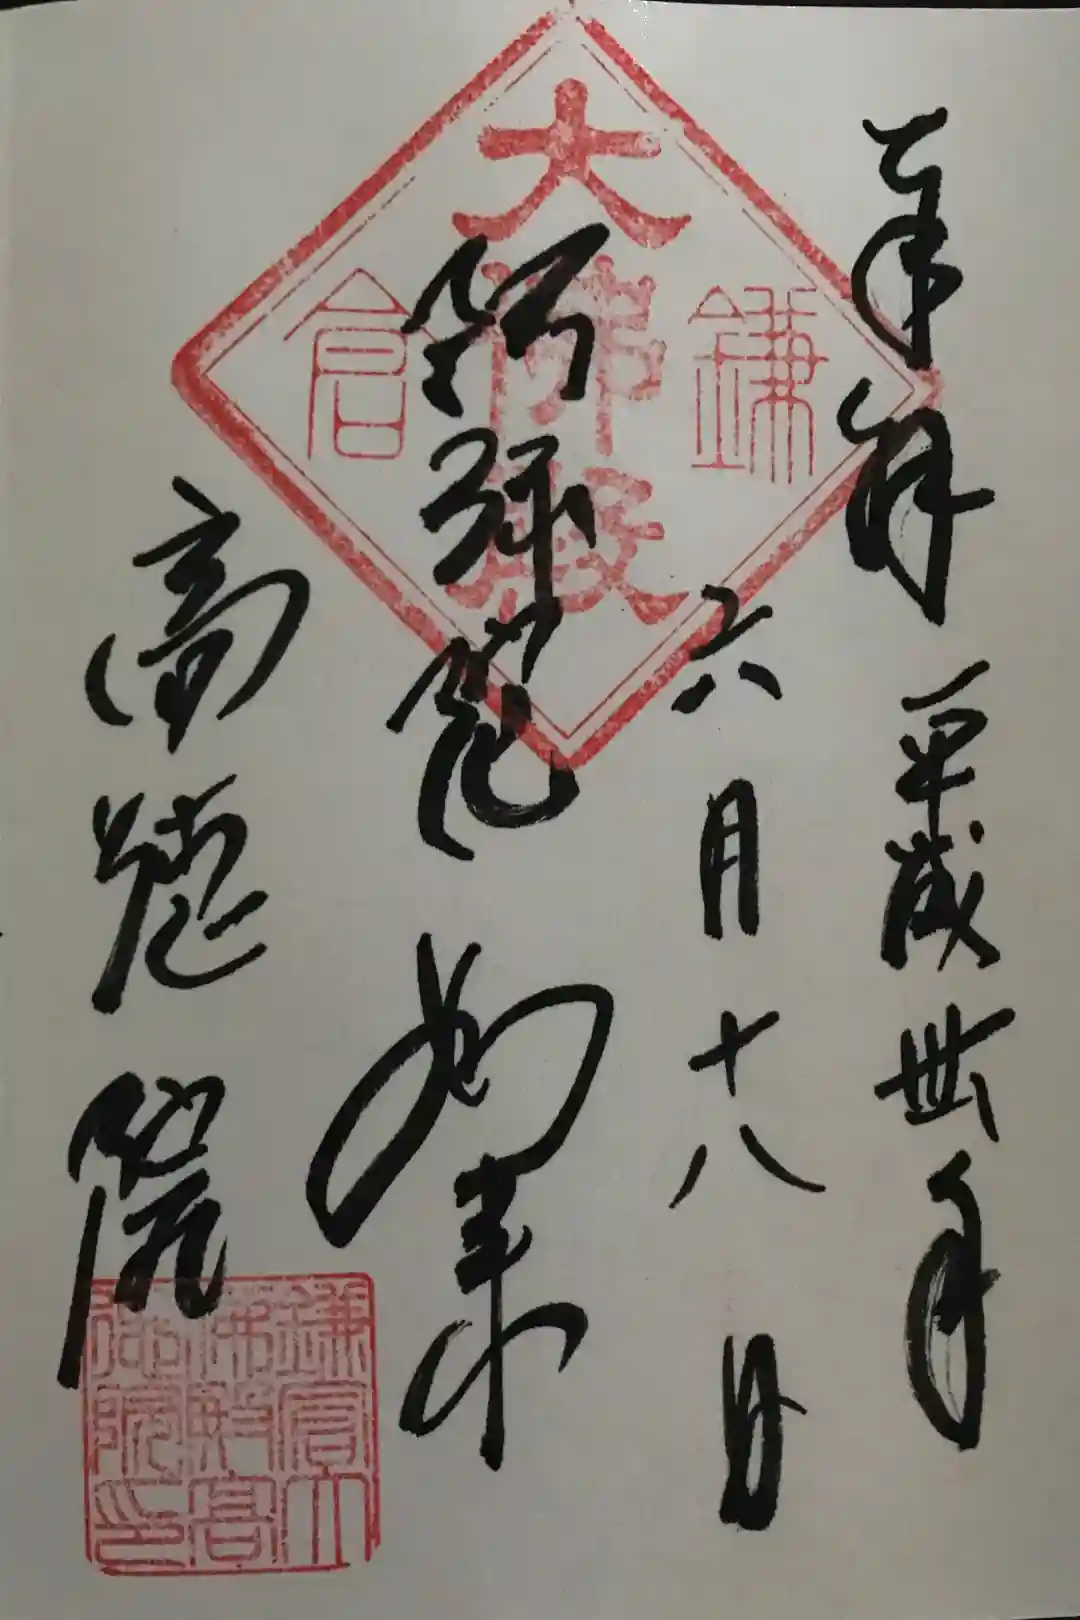 奉拝 平成丗年
六月十八日
鎌倉
大佛殿
阿弥陀如来
高徳院
鎌倉大
佛殿高
徳院印